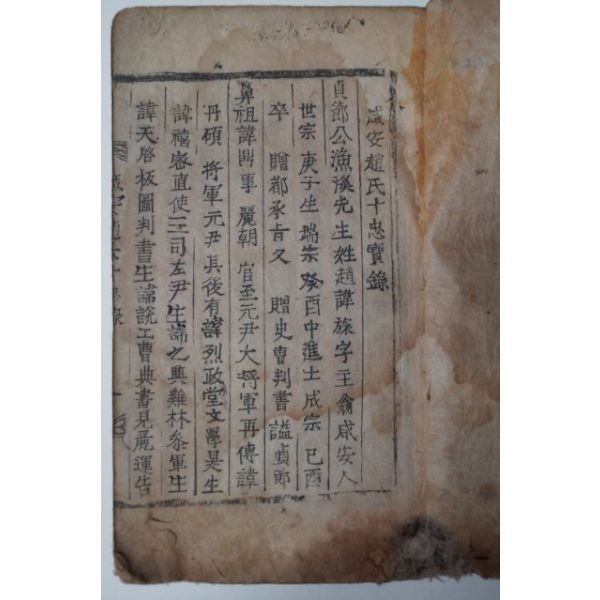 咸安趙氏十忠實錄
貞節公漁溪先生姓趙諱旅字主翁咸安人
世宗 庚子生 端宗 癸酉中進士 成宗 己酉
卒 贈都承旨又 贈吏曹判書 謚貞節
鼻祖諱鼎事 麗朝 官至元尹大將軍再傳諱
丹碩 將軍元尹其後有諱烈政堂文學是生
諱禧密直使三司左尹生諱之興雞林參軍生
諱天啓板圖判書生諱說工曹典書見麗運告